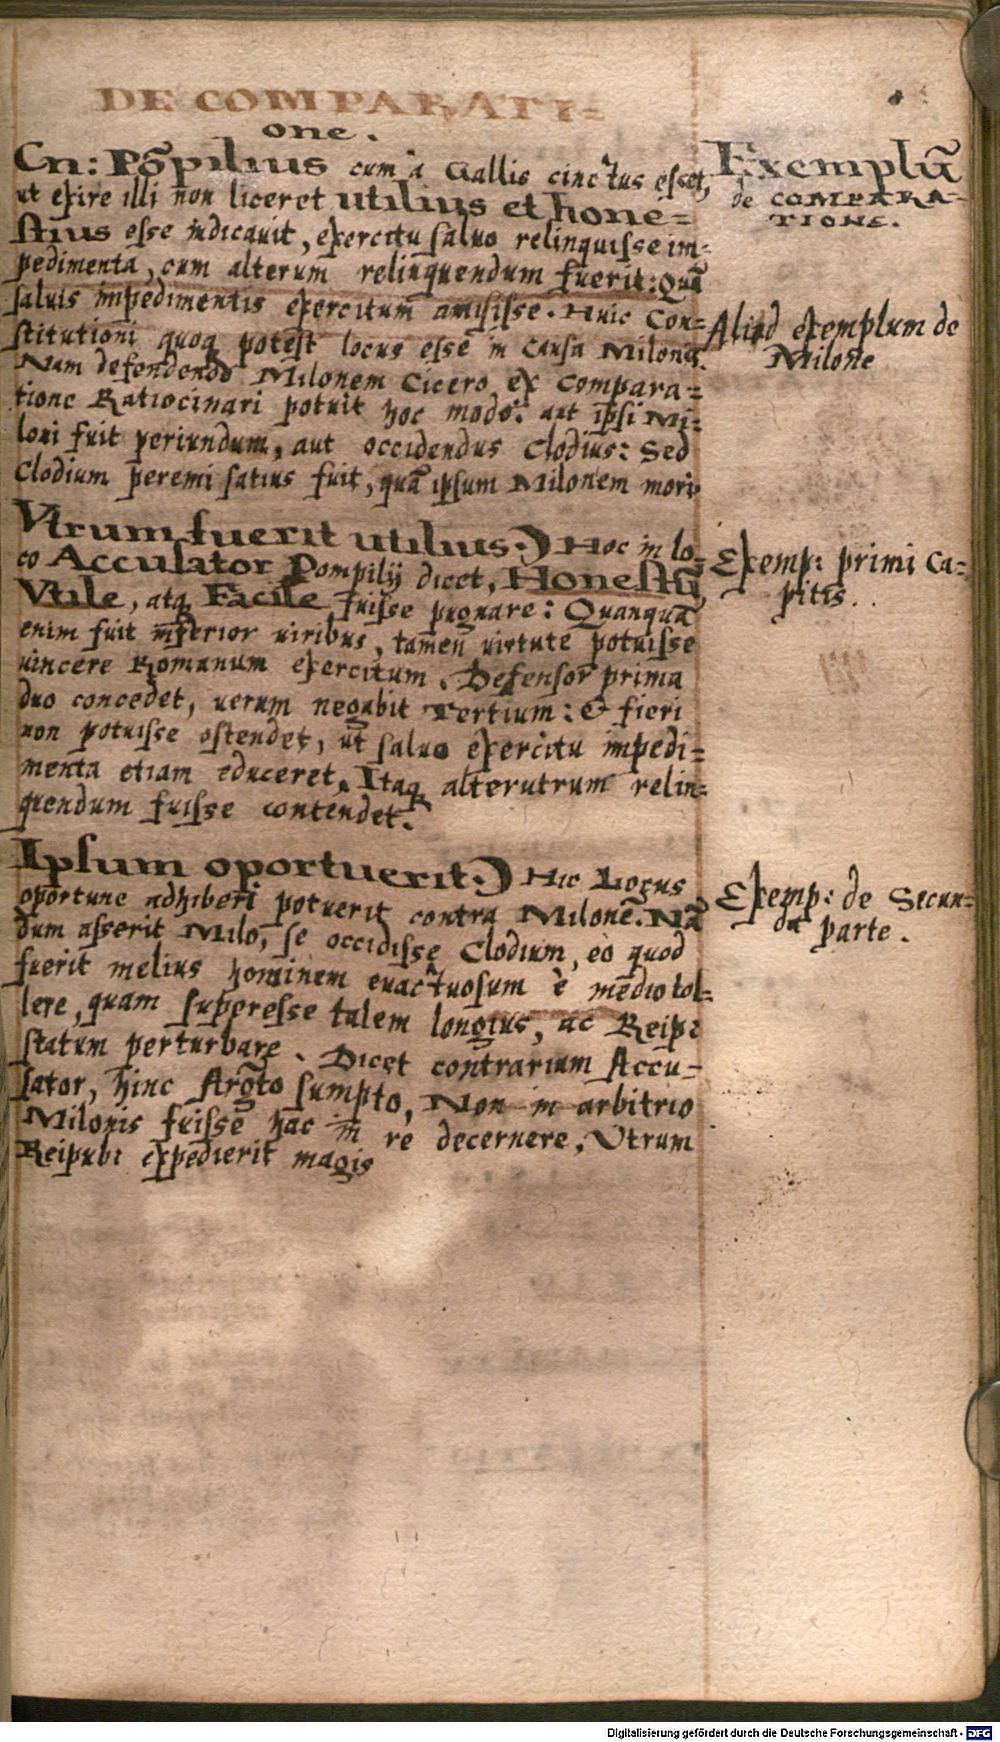 DE COMPARATI=
one.
Cn: Põpilius cum à Gallis cinctus esset,
ut exire illi non liceret utilius et hone=
stius esse iudicauit, exercitu saluo relinquisse im=
pedimenta, cum alterum relinquendum fuerit: Quã
saluis impedimentis exercitum amisisse. Huic Con=
stitutioni quoq potest locus esse in causa Milonis.
Nam defendendo Milonem Cicero ex compara=
tione Ratiocinari potuit hoc modo: aut ipsi Mi=
loni fuit periundum, aut occidendus Clodius: Sed
Clodium peremi satius fuit, quã ipsum Milonem mori
Vtrum fuerit utilius.) Hoc in lo=
co Accusator Pompilij dicet, Honestũ,
Vtile, atq Facile fuisse pugnare: Quanquã
enim fuit inferior uiribus, tamen uirtute potuisse
uincere Romanum exercitum. Defensor prima
duo concedet, uerum negabit Tertium: & fieri
non potuisse ostendet, ut saluo exercitu impedi=
menta etiam educeret. Itaq alterutrum relin=
quendum fuisse contendet.
Ipsum oportuerit.) Hic Locus
oportune adhiberi potuerit contra Milonẽ. Nã
dum asserit Milo, se occidisse Clodium, eò quod
fuerit melius hominem euactuosum è medio tol=
lere, quam superesse talem longius, ac Reip:
statum perturbare. Dicet contrarium Accu=
sator, hinc Argto sumpto, Non in arbitrio
Milonis fuisse hac in re decernere, Vtrum
Reipub: expedierit magis
Exemplũ
de COMPARA=
TIONE.
Aliud exemplum de
Milone
Exemp: primi Ca=
pitis.
Exemp: de Secun=
da parte.
Digitalisierung gefördert durch die Deutsche Forschungsgemeinschaft - DFG